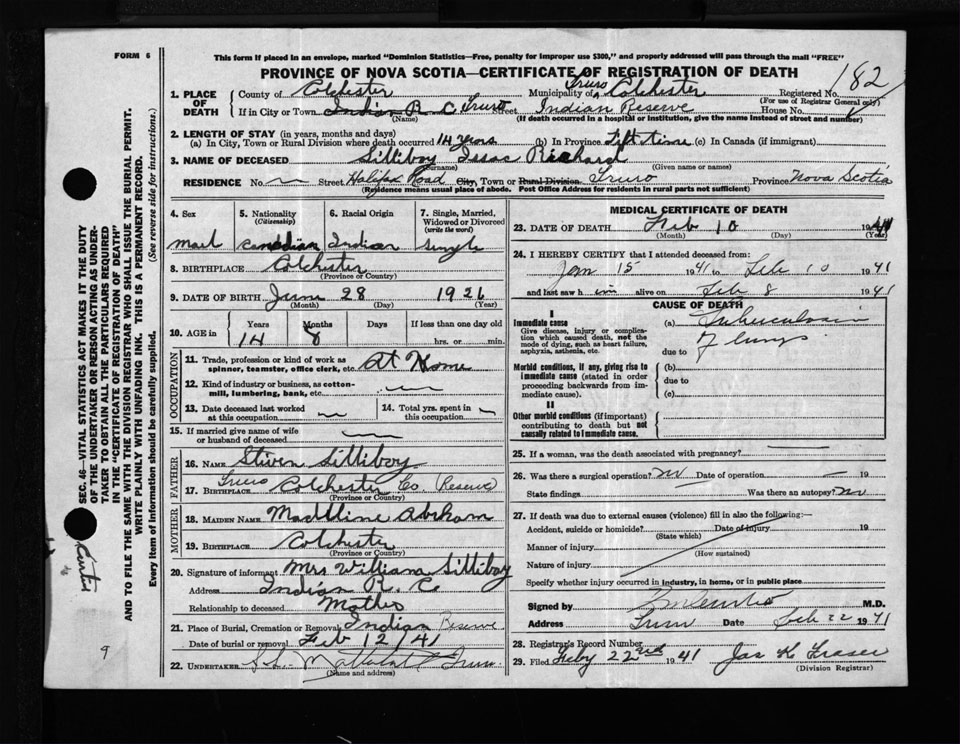 FORM 6
This form if placed in an envelope, marked "Dominion Statistics—Free, penalty for improper use $300," and properly addressed will pass through the mail "FREE"
PROVINCE OF NOVA SCOTIA—CERTIFICATE OF REGISTRATION OF DEATH
182
1. PLACE OF DEATH County of Colchester Municipality of Truro Colchester Registered No.
(For use of Registrar General only)
If in City or Town Indian R. C Truro Street Indian Reserve House No.
(Name) (If death occurred in a hospital or institution, give the name instead of street and number)
2. LENGTH OF STAY (in years, months and days)
(a) In City, Town or Rural Division where death occurred 14 years (b) In Province Lift time (c) In Canada (if immigrant)
3. NAME OF DECEASED Silliboy Issac Richard
(Surname) (Given name or names)
RESIDENCE No. Street Halifax Road City, Town or Rural Division Truro Province Nova Scotia
(Residence means usual place of abode. Post Office Address for residents in rural parts not sufficient)
4. Sex
Mael
5. Nationality (Citizenship)
Canadian
6. Racial Origin
Indian
7. Single, Married, Widowed or Divorced (write the word)
Single
8. BIRTHPLACE Colchester
(Province or Country)
9. DATE OF BIRTH June 28 1926
(Month) (Day) (Year)
10. AGE in Years Months Days If less than one day old
14 8 hrs. or min.
OCCUPATION
11. Trade, profession or kind of work as spinner, teamster, office clerk, etc. At Home
12. Kind of industry or business, as cotton-mill, lumbering, bank, etc.
13. Date deceased last worked at this occupation
14. Total yrs. spent in this occupation
15. If married give name of wife or husband of deceased
FATHER
16. NAME Stiven Silliboy
17. BIRTHPLACE Truro Colchester Co. Reserve
(Province or Country)
MOTHER
18. MAIDEN NAME Madtline Abrham
19. BIRTHPLACE Colchester
(Province or Country)
20. Signature of informant Mrs William Silliboy
Address Indian R. C
Relationship to deceased Mother
21. Place of Burial, Cremation or Removal Indian Reserve
Date of burial or removal Feb 12 / 41
22. UNDERTAKER Truro
(Name and address)
MEDICAL CERTIFICATE OF DEATH
23. DATE OF DEATH Feb 10 1941
(Month) (Day) (Year)
24. I HEREBY CERTIFY that I attended deceased from:
Jan 15 1941 to Feb 10 1941
and last saw him alive on Feb 8 1941
CAUSE OF DEATH
I
Immediate cause
Give disease, injury or complication which caused death, not the mode of dying, such as heart failure, asphyxia, asthenia, etc.
(a) Tuberculosis
due to of lungs
Morbid conditions, if any, giving rise to immediate cause (stated in order proceeding backwards from immediate cause)
(b)
due to
(c)
II
Other morbid conditions (if important) contributing to death but not causally related to immediate cause.
25. If a woman, was the death associated with pregnancy?
26. Was there a surgical operation? no Date of operation 19
State findings Was there an autopsy? no
27. If death was due to external causes (violence) fill in also the following:—
Accident, suicide or homicide? Date of injury 19
(State which)
Manner of injury
(How sustained)
Nature of injury
Specify whether injury occurred in industry, in home, or in public place
Signed by M.D.
Address Truro Date Feb 22 1941
28. Registrar's Record Number
29. Filed Feby 22nd 1941 Jas K Fraser
(Division Registrar)
SEC. 46—VITAL STATISTICS ACT MAKES IT THE DUTY OF THE UNDERTAKER OR PERSON ACTING AS UNDERTAKER TO OBTAIN ALL THE PARTICULARS REQUIRED IN THE "CERTIFICATE OF REGISTRATION OF DEATH" AND TO FILE THE SAME WITH THE DIVISION REGISTRAR WHO SHALL ISSUE THE BURIAL PERMIT.
WRITE PLAINLY WITH UNFADING INK. THIS IS A PERMANENT RECORD.
Every item of information should be carefully supplied. (See reverse side for instructions.)
9